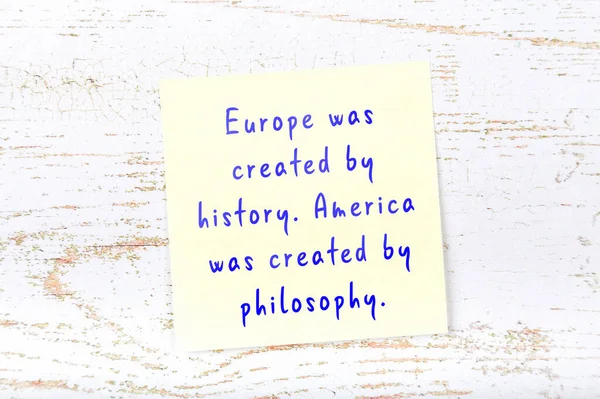 Europe was
created by
history. America
was created by
philosophy.